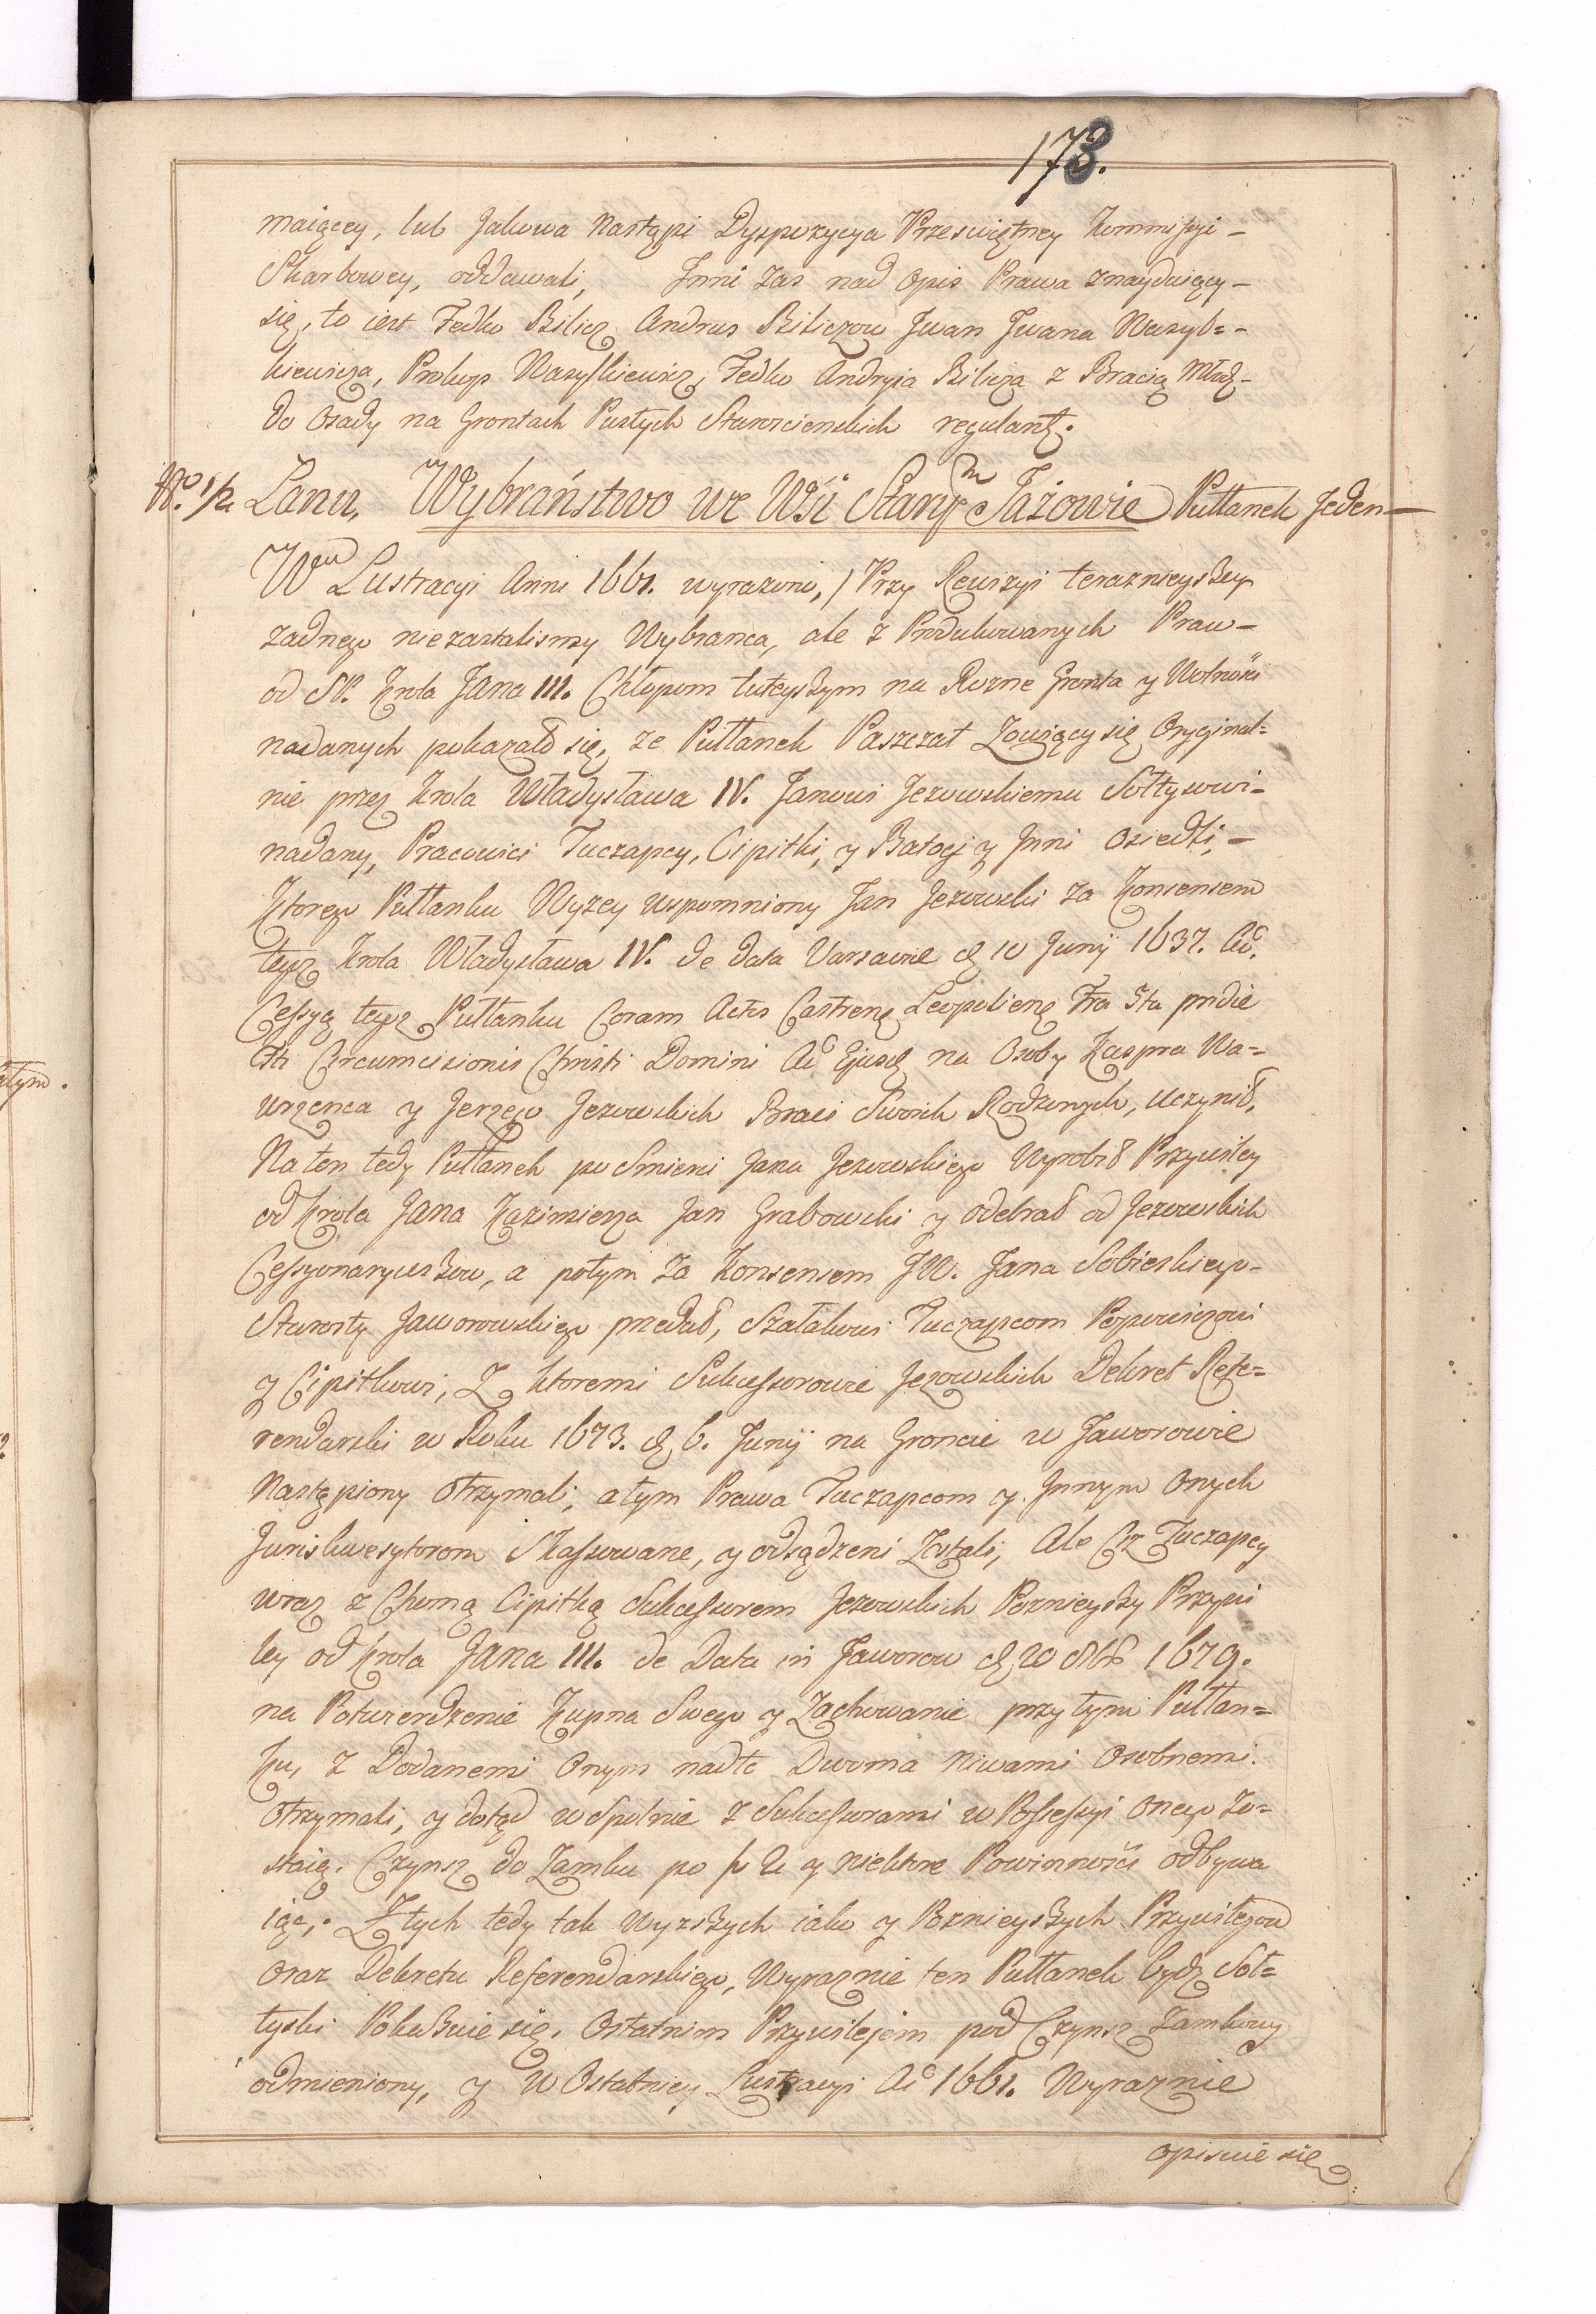 173.
maiącey, lub Jakowa Nastąpi Dyspozycya Przeświętney Kommissyi -
Skarbowey, oddawali, Inni zas nad Opis Prawa znayduiący -
się, to iest Fedko Bilicz Andrus Biliczow Jwan Jwana Wasyl= -
kiewicza, Prokop Wasylkiewicz, Fedko Andryia Bilicza z Bracią Młod -
do Osady na Grontach Pustych Starościenskich regulant.
No. 1/2 Łanu, Wybraństwo we Wsi Starym Jażowie Pułłanek Jeden —
W Lustracyi Anni 1661. wyrazono, / Przy Rewizyi teraznieyszey
zadnego niezastalismy Wybranca, ale z Produkowanych Praw -
od SP. Krola Jana III. Chłopom tuteyszym na Rozne Gronta y Wolności
nadanych pokazało się, ze Pułłanek Paszczat Zowiący się Oryginal=
nie przez Krola Władysława IV. Janowi Jezowskiemu Sołtysowi -
nadany, Pracowici Tuczapcy, Cipitki, y Batog y Inni Osiedli, -
Ktorego Pułłanku Wyzey wspomniony Jan Jezowski za Konsensem
tegoz Krola Władysława IV. de data Varsaviæ d. 10 Junij 1637. Ao.
Cessyą tegoz Pułłanku Coram Actis Castren. Leopolien. Fra 5ta pridie
Fsti Circumcisionis Christi Domini Ao Ejusd. na Osoby Kaspra Wa=
wrzenca y Jerzego Jezowskich Braci Swoich Rodzonych, uczynił,
Na ten tedy Pułłanek po Smierci Jana Jezowskiego Wyrobił Przywiley
od Krola Jana Kazimierza Jan Grabowski y odebrał od Jezowskich
Cessyonaryuszow, a potym za Konsensem JW. Jana Sobieskiego -
Starosty Jaworowskiego przedał, Szałakowi Tuczapcom Popowiczowi
y Cipitkowi, Z ktoremi Sukcessorowie Jezowskich Dekret Refe=
rendarski w Roku 1673. d. 6. Junij na Groncie w Jaworowie
Nastąpiony otrzymali, a tym Prawa Tuczapcom y Innym Onych
Juriskwesytorom Skassowane, y odsądzeni Zostali, Ale Ciz Tuczapcy
wraz z Chomą Cipitką Sukcessorem Jezowskich Poznieyszy Przywi
ley od Krola Jana III. de Data in Jaworow d. 20 8bris 1679.
na Potwierdzenie Kupna Swego y Zachowanie przy tym Pułłan=
ku, z Dodanemi Onym nadto Dwoma Niwami Osobnemi
otrzymali, y dotąd wspolnie z Sukcessorami w Possessyi Onego Zo=
staią. Czynsz do Zamku po f 2 y niektore Powinności odbywa
ią, Z tych tedy tak Wyzszych iako y Poznieyszych Przywilejow
oraz Dekretu Referendarskiego, Wyraznie ten Pułłanek bydz Soł=
tyski Pokazuie się. Ostatnim Przywilejem pod Czynsz Zamkowy
odmieniony, y w Ostatniey Lustracyi Ao 1661. Wyraznie
opisuie się